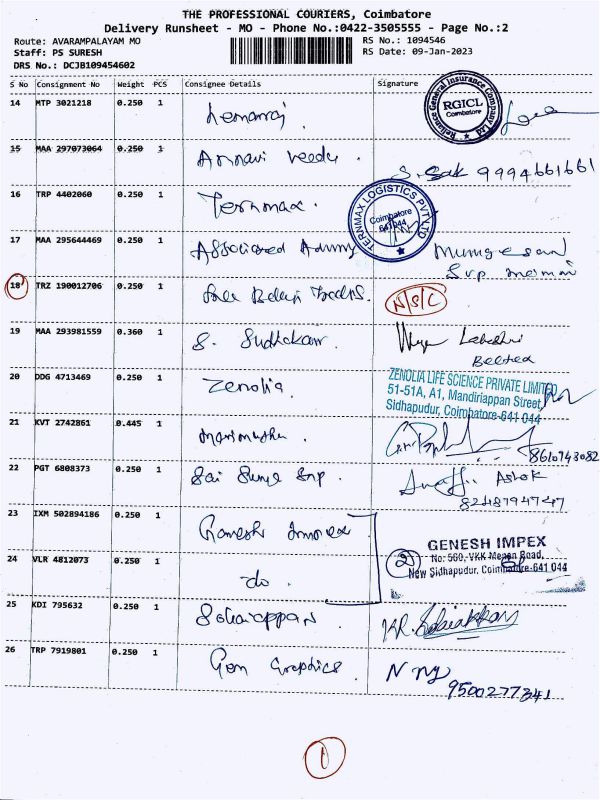 THE PROFESSIONAL COURIERS, Coimbatore
Delivery Runsheet - MO - Phone No.:0422-3505555 - Page No.:2
Route: AVARAMPALAYAM MO RS No.: 1094546
Staff: PS SURESH RS Date: 09-Jan-2023
DRS No.: DCJB109454602
S No Consignment No Weight PCS Consignee Details Signature
14 MTP 3021218 0.250 1
Reliance General Insurance Company Ltd
RGICL
Coimbatore
15 MAA 297073064 0.250 1 Annavi veedu
9994661661
16 TRP 4402060 0.250 1 Ternmax
TERNMAX LOGISTICS PVT LTD
Coimbatore
641 044
17 MAA 295644469 0.250 1 Associated Murugesan
18 TRZ 190012706 0.250 1 N/S/C
19 MAA 293981559 0.360 1 S. Sudhakar
20 DDG 4713469 0.250 1 Zenolia
ZENOLIA LIFE SCIENCE PRIVATE LIMITED
51-51A, A1, Mandiriappan Street,
Sidhapudur, Coimbatore-641 044
21 KVT 2742861 0.445 1 Marimuthu
8610743082
22 PGT 6808373 0.250 1 Sai Surya Ashok
8248794747
23 IXM 502894186 0.250 1 Ganesh Impex
GENESH IMPEX
No: 560, VKK Menon Road,
New Sidhapudur, Coimbatore-641 044
2
24 VLR 4812073 0.250 1 do.
25 KDI 795632 0.250 1 Solaiappan KR. Solaiappan
26 TRP 7919801 0.250 1 Gem Graphics
9500277341
1